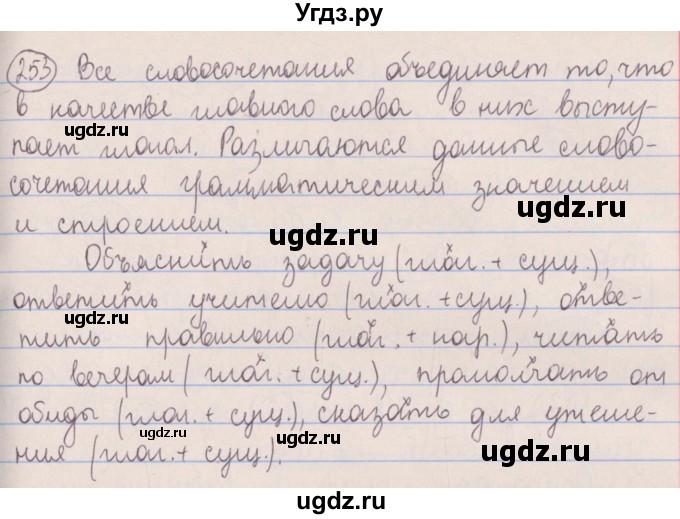 Угдз.ру
253 Все словосочетания объединяет то, что
в качестве главного слова в них высту-
пает глагол. Различаются данные слово-
сочетания грамматическим значением
и строением.
Объяснить задачу (глаг. + сущ.),
ответить учителю (глаг. + сущ.), отве-
тить правильно (глаг. + нар.), читать
по вечерам (глаг. + сущ.), промолчать от
обиды (глаг. + сущ.), сказать для утеше-
ния (глаг. + сущ.).
ugdz.ru
ugdz.ru
ugdz.ru
ugdz.ru
ugdz.ru
ugdz.ru
ugdz.ru
ugdz.ru
ugdz.ru
ugdz.ru